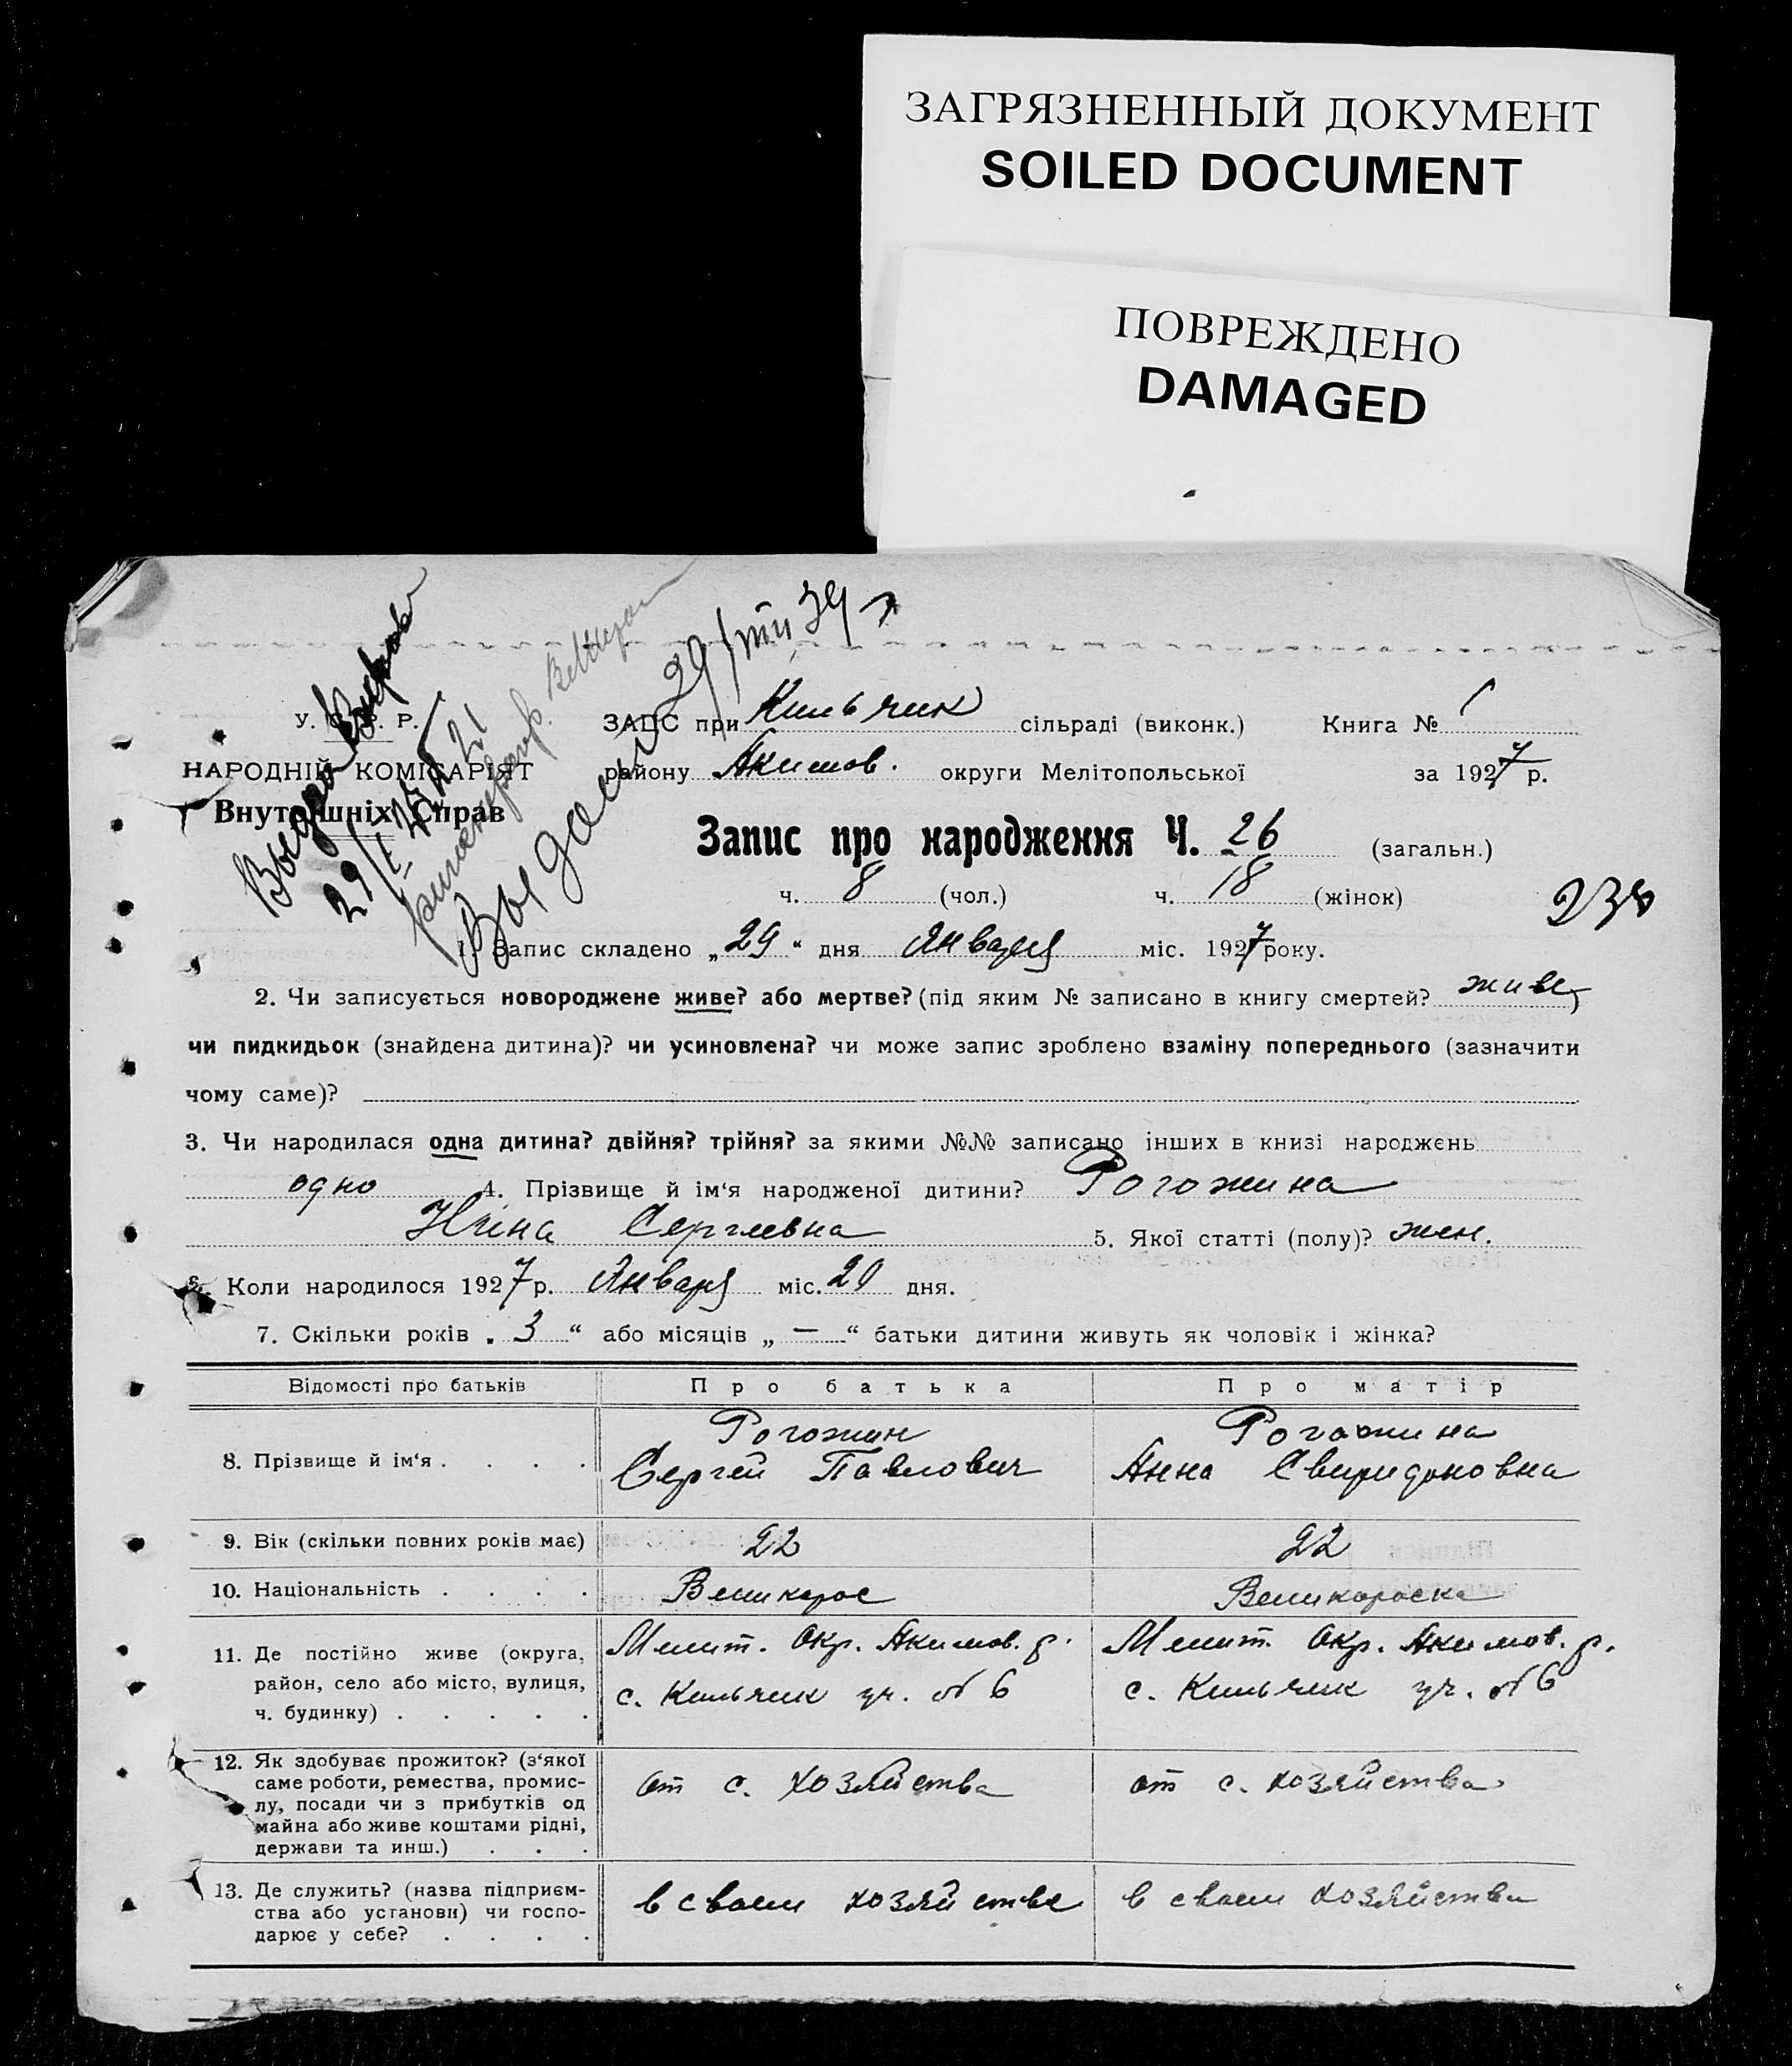 ЗАГРЯЗНЕННЫЙ ДОКУМЕНТ
SOILED DOCUMENT
ПОВРЕЖДЕНО
DAMAGED
Выдан
29/I
Выдан 29/VIII 39
У. С. Р. Р.
НАРОДНІЙ КОМІСАРІЯТ
Внутрішніх Справ
ЗАЦС при Кильчик сільраді (виконк.) Книга №
району Акимов. округи Мелітопольської за 1927 р.
Запис про народження Ч. 26 (загальн.)
ч. 8 (чол.) ч. 18 (жінок)
238
1. Запис складено „29“ дня Января міс. 1927 року.
2. Чи записується новороджене живе? або мертве? (під яким № записано в книгу смертей? живе)
чи пидкидьок (знайдена дитина)? чи усиновлена? чи може запис зроблено взаміну попереднього (зазначити
чому саме)?
3. Чи народилася одна дитина? двійня? трійня? за якими №№ записано інших в книзі народжень
одно 4. Прізвище й ім‘я народженої дитини? Рогожина
Нина Сергеевна 5. Якої статті (полу)? жен.
6. Коли народилося 1927 р. Января міс. 20 дня.
7. Скільки років „3“ або місяців „—“ батьки дитини живуть як чоловік і жінка?
Відомості про батьків Про батька Про матір
8. Прізвище й ім‘я . . . . Рогожин Сергей Павлович Рогожина Анна Свиридоновна
9. Вік (скільки повних років має) 22 22
10. Національність . . . . Великорос Великороска
11. Де постійно живе (округа, Мелит. Окр. Акимов. р. Мелит. Окр. Акимов. р.
район, село або місто, вулиця, с. Кильчик уч. № 6 с. Кильчик уч. № 6
ч. будинку) . . . . .
12. Як здобуває прожиток? (з‘якої
саме роботи, ремества, промис- от с. хозяйства от с. хозяйства
лу, посади чи з прибутків од
майна або живе коштами рідні,
держави та инш.) . . .
13. Де служить? (назва підприєм- в своем хозяйстве в своем хозяйстве
ства або установи) чи госпо-
дарює у себе? . . . .